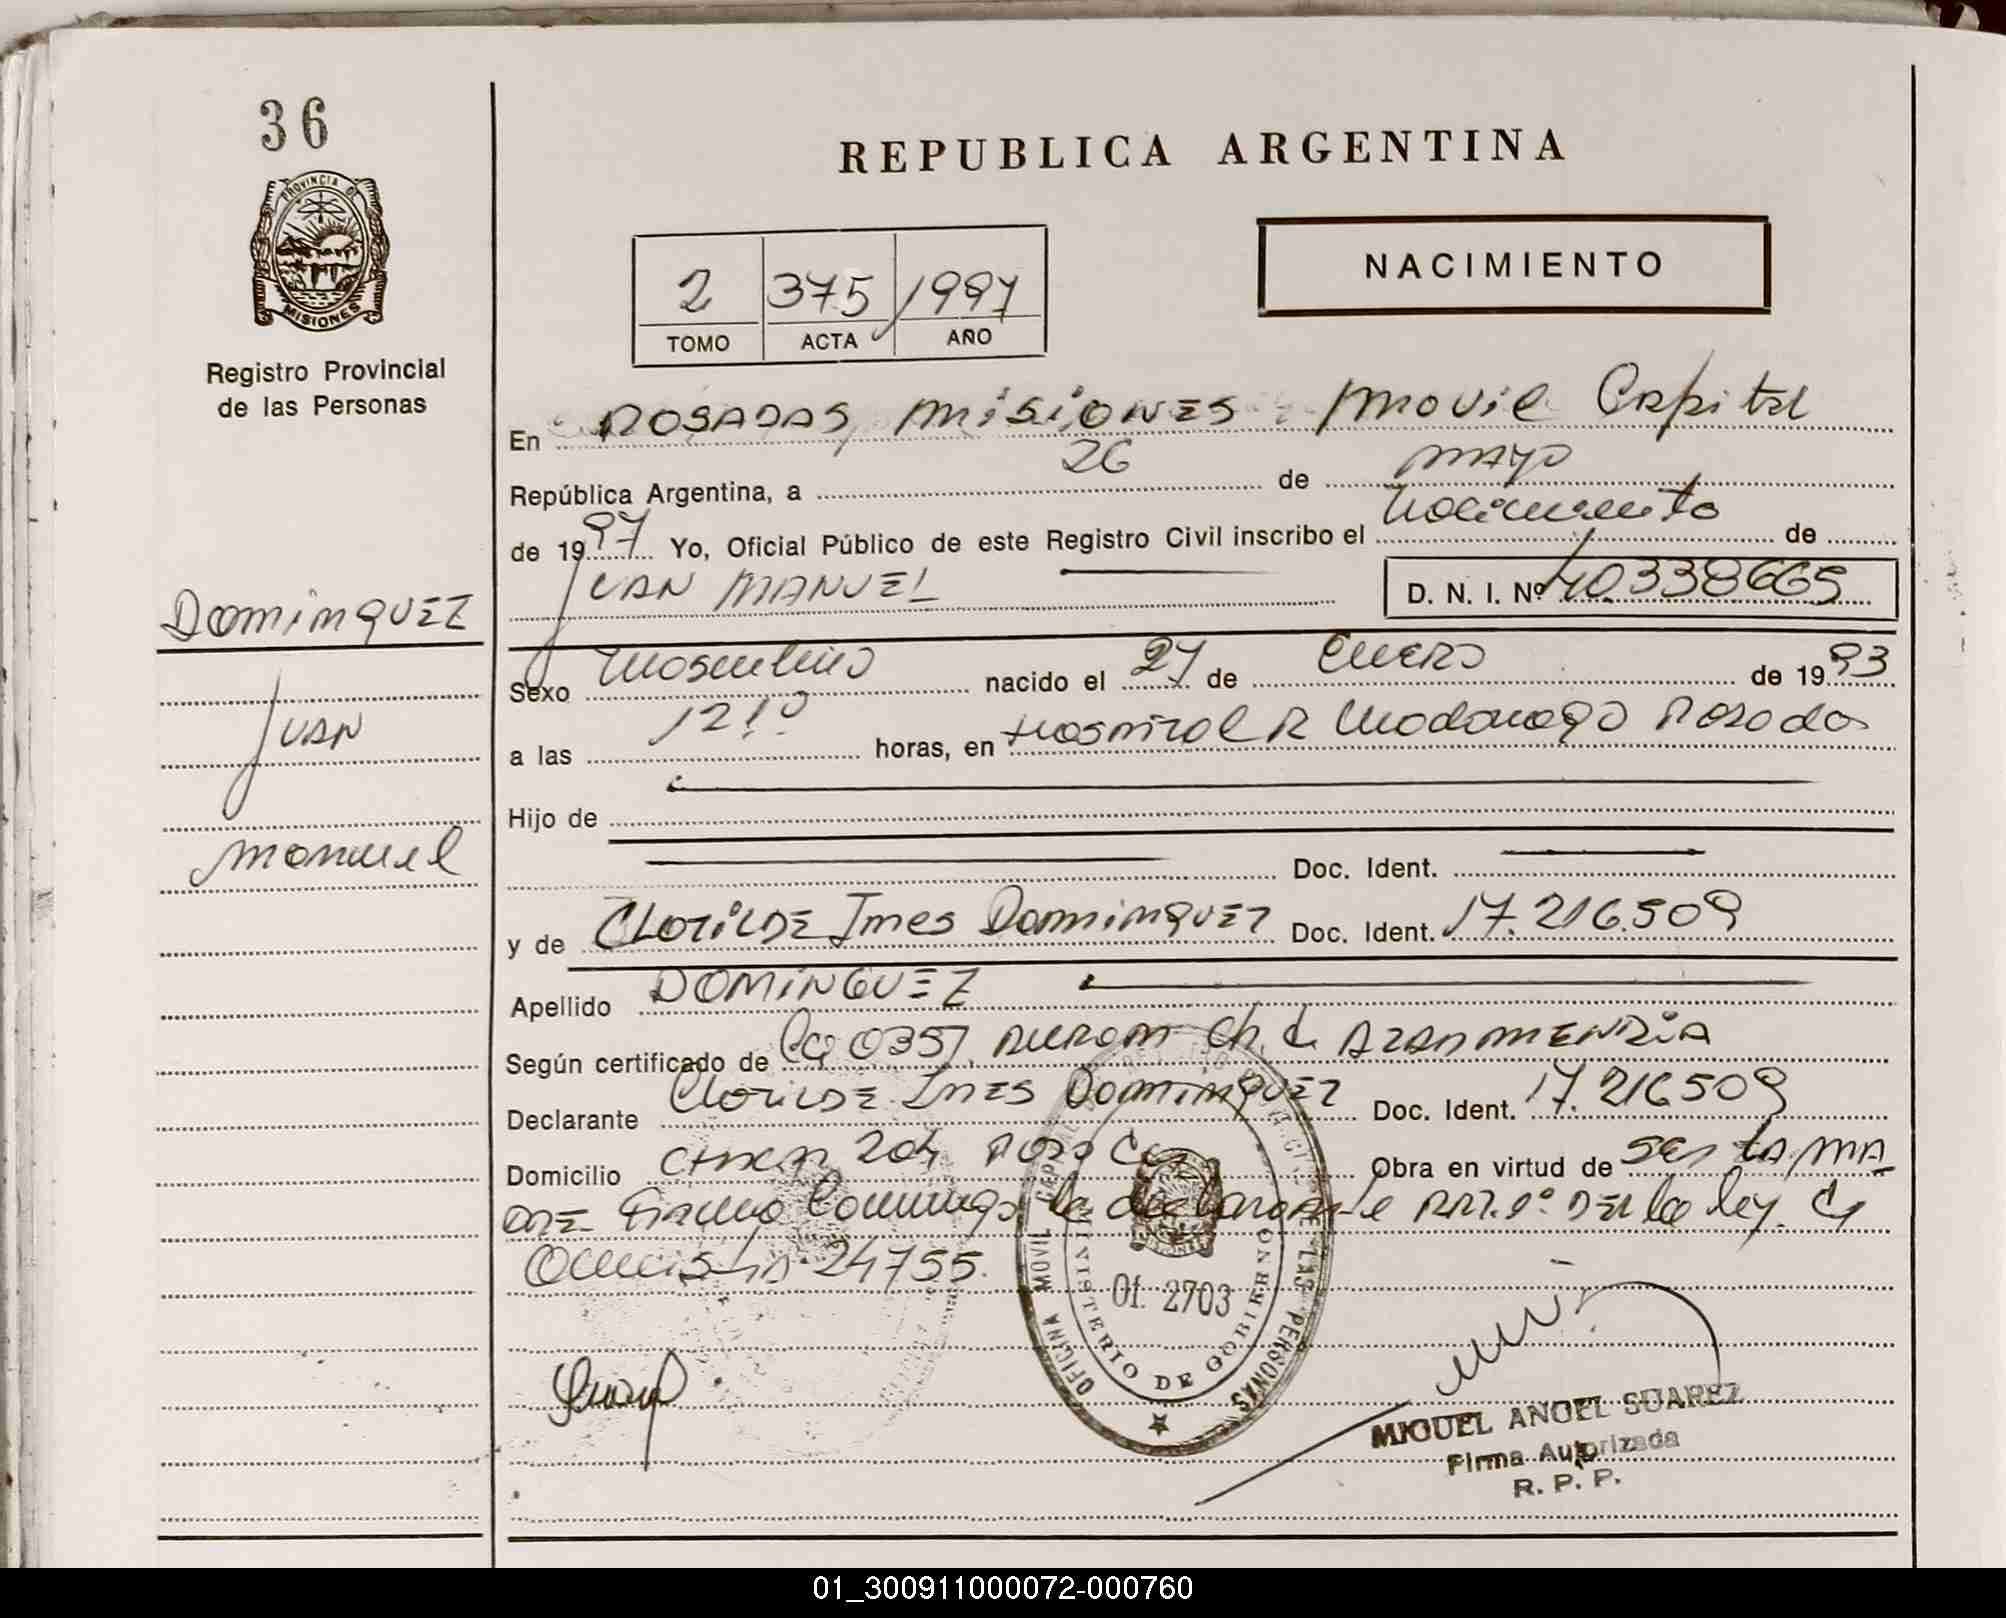 36
PROVINCIA DE
MISIONES
Registro Provincial
de las Personas
DOMINGUEZ
JUAN
Manuel
REPUBLICA ARGENTINA
NACIMIENTO
2 375 1997
TOMO ACTA AÑO
En POSADAS MISIONES Movil Capital
República Argentina, a 26 de MAYO
de 1997 Yo, Oficial Público de este Registro Civil inscribo el Nacimiento de
JUAN MANUEL D. N. I. Nº 40.338665
Sexo Masculino nacido el 27 de Enero de 1993
a las 12 10 horas, en Hospital R Madariaga Posadas
Hijo de
Doc. Ident.
y de CLOTILDE Ines Dominguez Doc. Ident. 17.216.509
Apellido DOMINGUEZ
Según certificado de
Declarante Clotilde INES Dominguez Doc. Ident. 17.216509
Domicilio 204 Obra en virtud de ser LA MA
DRE Firma Conmigo la declarante ART. de la ley
24755.
OFICINA MOVIL CAPITAL DE LAS PERSONAS
MINISTERIO DE GOBIERNO
Of. 2703
MIGUEL ANGEL SUAREZ
Firma Autorizada
R. P. P.
01_300911000072-000760